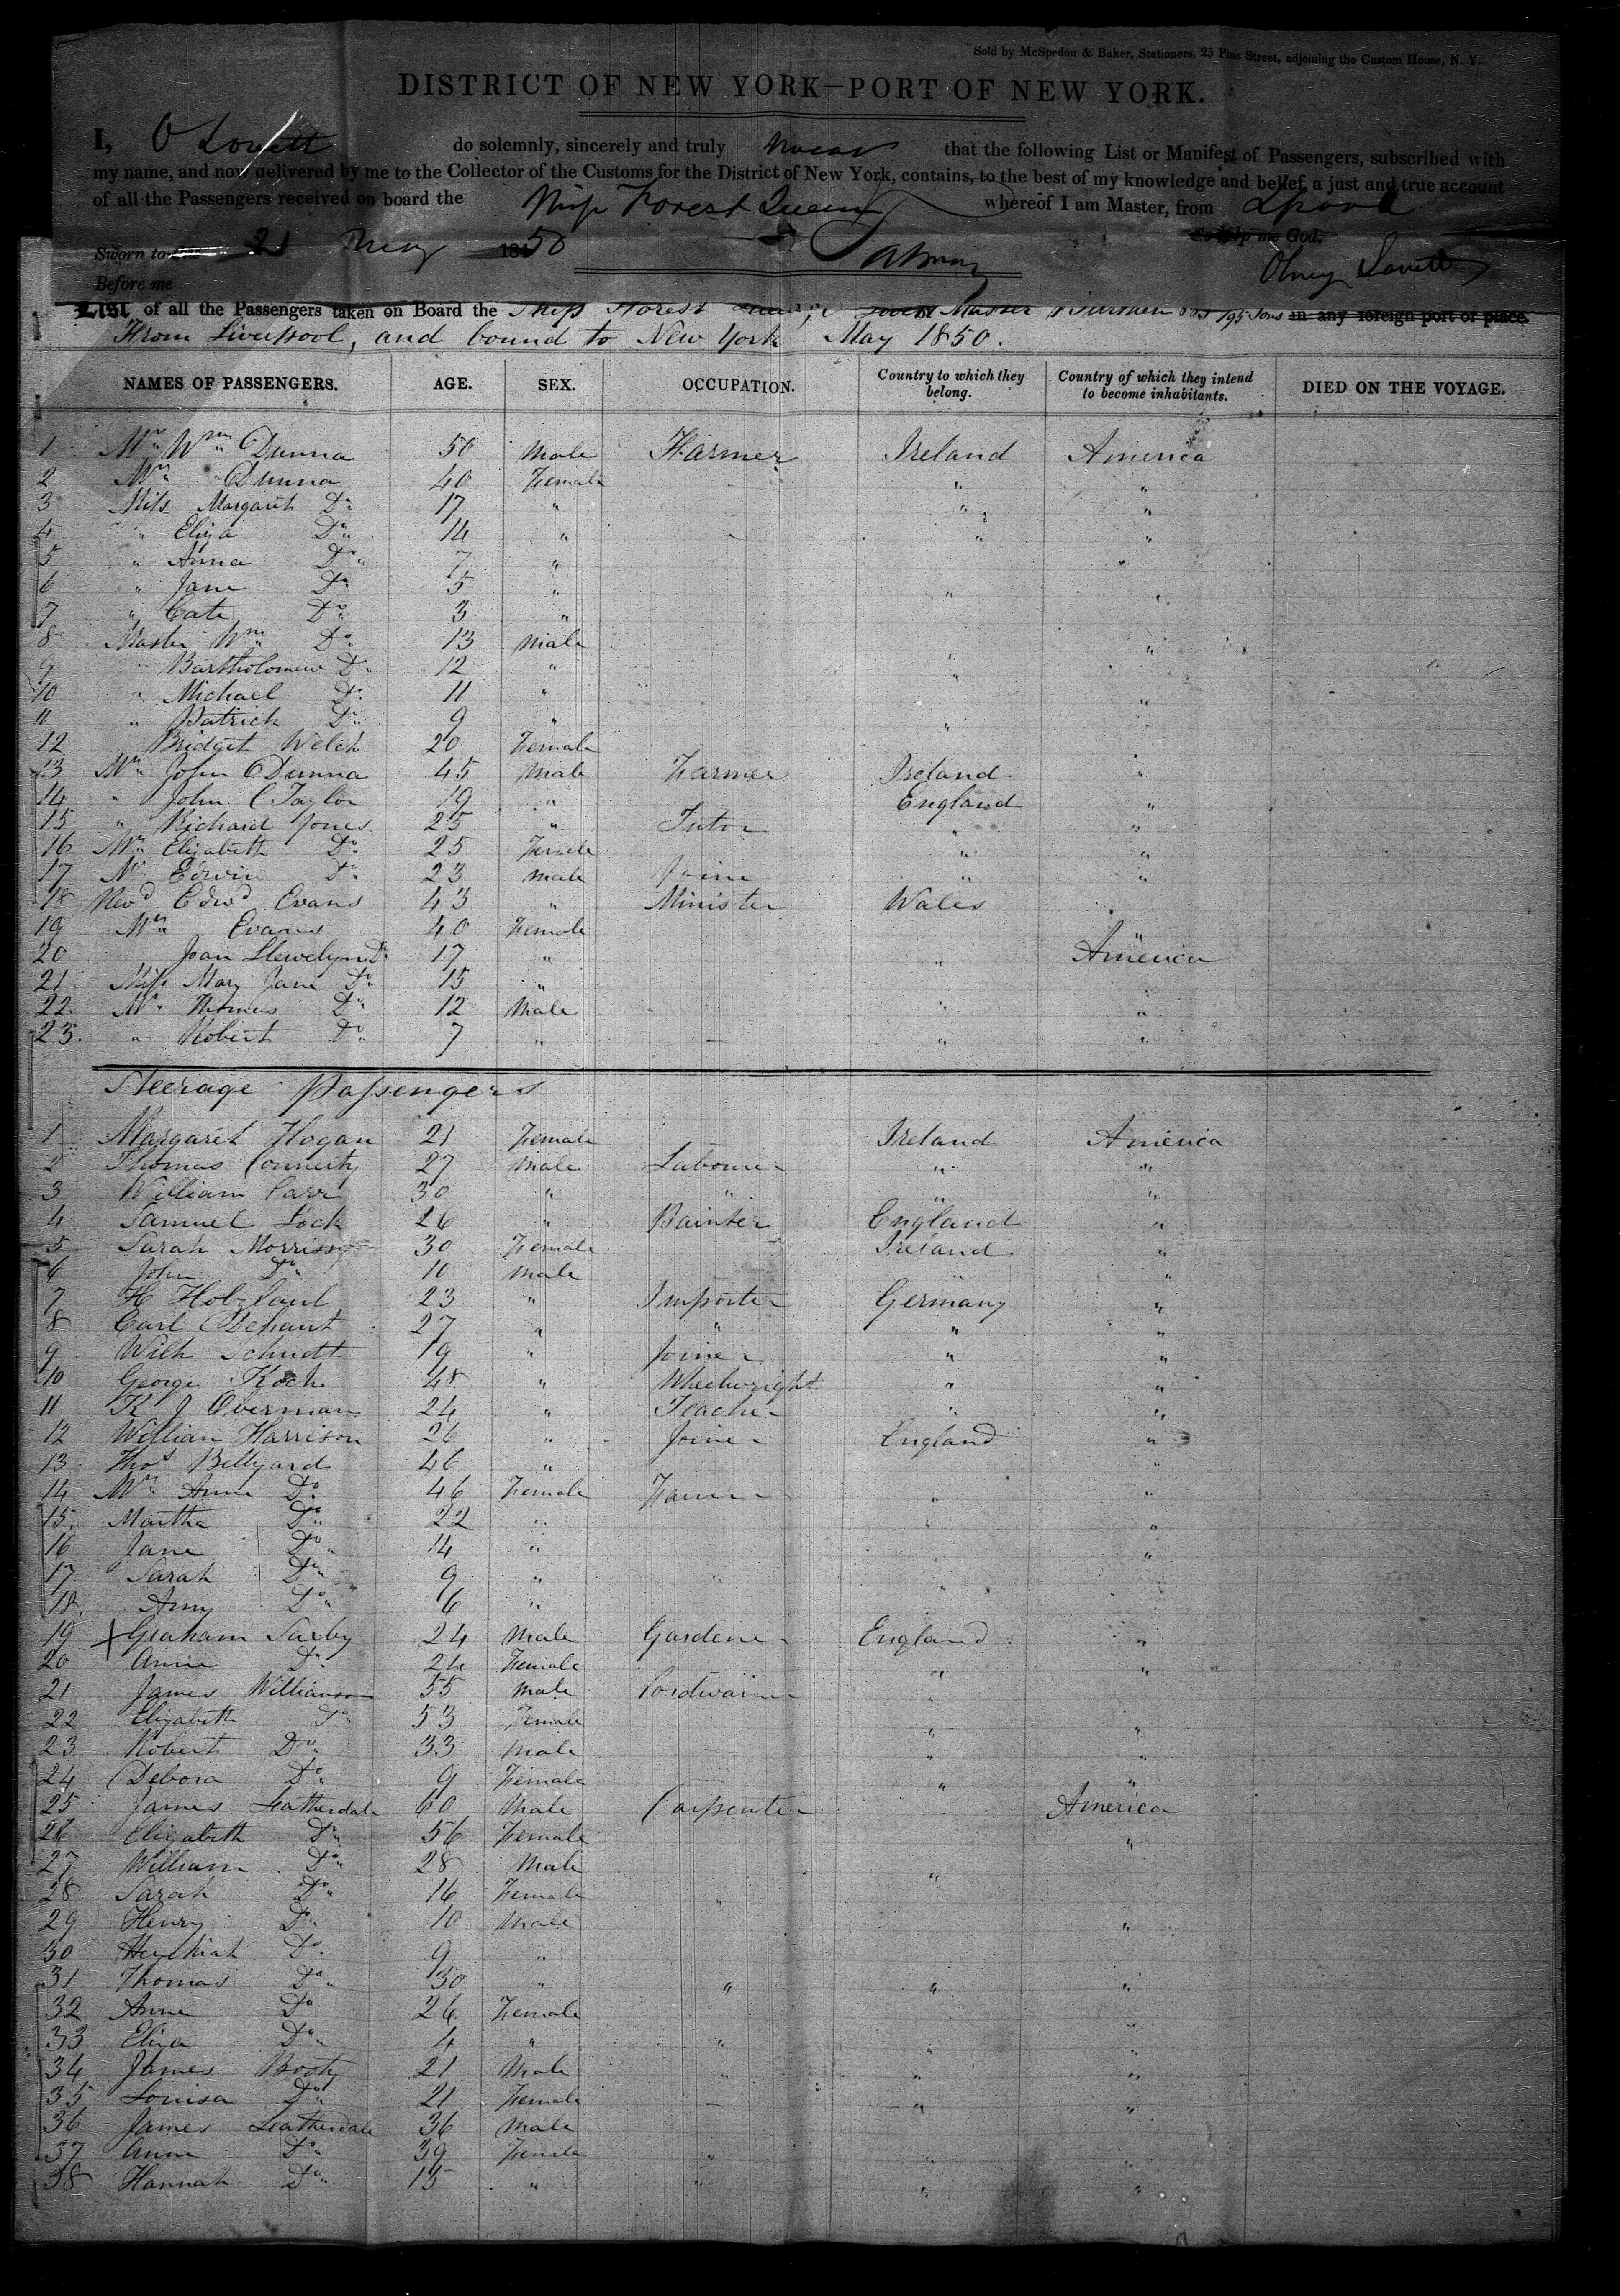 Sold by McSpedon & Baker, Stationers, 25 Pine Street, adjoining the Custom House, N. Y.
DISTRICT OF NEW YORK—PORT OF NEW YORK.
I, O Lovett do solemnly, sincerely and truly swear that the following List or Manifest of Passengers, subscribed with
my name, and now delivered by me to the Collector of the Customs for the District of New York, contains, to the best of my knowledge and belief, a just and true account
of all the Passengers received on board the Ship Forest Queen whereof I am Master, from Lpool
So help me God.
Sworn to 21 May 1850
Olney Lovett
Before me
List of all the Passengers taken on Board the Ship Forest Queen, Lovett Master Burthen 195 Tons in any foreign port or place.
From Liverpool, and bound to New York May 1850.
NAMES OF PASSENGERS. AGE. SEX. OCCUPATION. Country to which they belong. Country of which they intend to become inhabitants. DIED ON THE VOYAGE.
1 Mr Wm Dunna 50 Male Farmer Ireland America
2 Mrs Dunna 40 Female " "
3 Miss Margaret Do 17 " " "
4 " Eliza Do 14 " " "
5 " Anna Do 7 " "
6 " Jane Do 5 " " "
7 " Cate Do 3 "
8 Master Wm Do 13 Male "
9 " Bartholomew Do 12 " "
10 " Michael Do 11 " "
11 " Patrick Do 9 " "
12 Bridget Welch 20 Female
13 Mr John Dunna 45 Male Farmer Ireland "
14 " John C Taylor 19 " England "
15 " Richard Jones 25 " Tutor " "
16 Mrs Elizabeth Do 25 Female " "
17 Mr Edwin Do 23 Male Joiner " "
18 Revd Edwd Evans 43 " Minister Wales
19 Mrs Evans 40 Female "
20 Joan Llewelyn Do 17 " " America
21 Miss Mary Jane Do 15 "
22 Mr Thomas Do 12 Male " "
23 " Robert Do 7 " " "
Steerage Passengers
1 Margaret Hogan 21 Female Ireland America
2 Thomas Connerty 27 Male Labourer " "
3 William Carr 30 " " " "
4 Samuel Lock 26 " Painter England "
5 Sarah Morrissy 30 Female Ireland "
6 John Do 10 Male "
7 H 23 " Importer Germany "
8 Carl 27 " " " "
9 Wilh Schmdt 19 " Joiner " "
10 George Koch 48 " Wheelwright " "
11 K J Overman 24 " Teacher " "
12 William Harrison 26 " Joiner England "
13 Thos Bellyard 46 " "
14 Mrs Anne Do 46 Female Farmer " "
15 Martha Do 22 " "
16 Jane Do 14 " "
17 Sarah Do 9 "
18 Amy Do 6 "
19 Graham Saxby 24 Male Gardener England "
20 Anne Do 24 Female " "
21 James Williamson 55 Male Cordwainer
22 Elizabeth Do 53 Female " "
23 Robert Do 33 Male " "
24 Debora Do 9 Female " "
25 James Leatherdale 60 Male Carpenter America
26 Elizabeth Do 56 Female "
27 William Do 28 Male "
28 Sarah Do 16 Female
29 Henry Do 10 Male "
30 Hezekiah Do 9 "
31 Thomas Do 30 " " " "
32 Anne Do 26 Female "
33 Eliza Do 4 " " " "
34 James Booty 21 Male " " "
35 Louisa Do 21 Female " "
36 James Leatherdale 36 Male
37 Anne Do 39 Female " " "
38 Hannah Do 15 " " " "